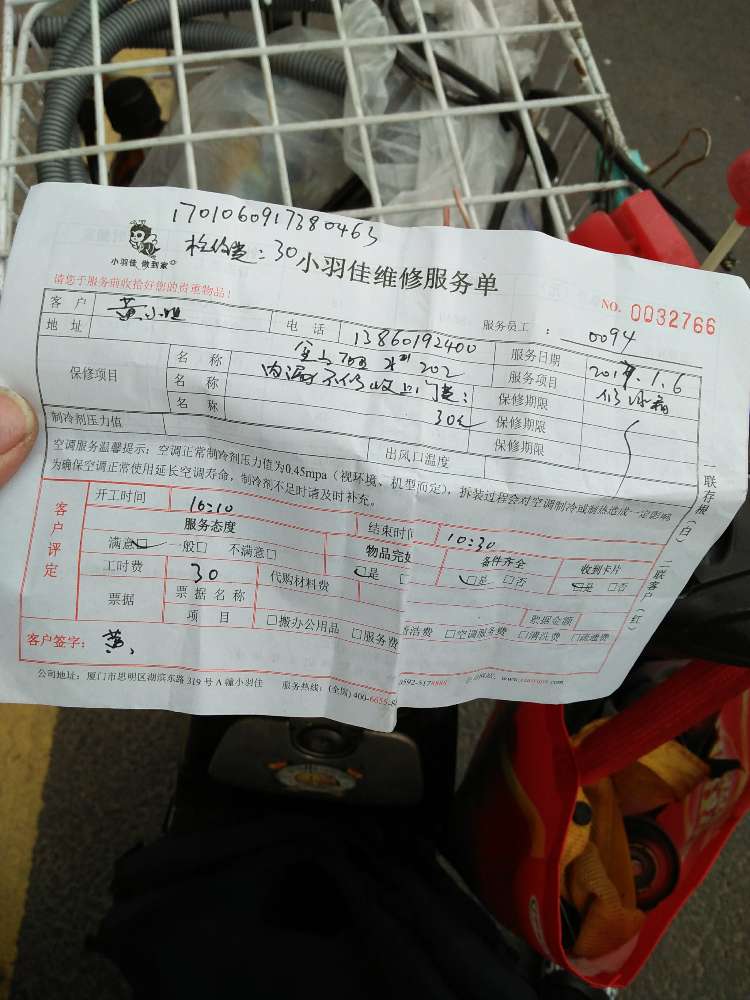 1701060917380463
检修费:30
小羽佳 做到家
小羽佳维修服务单
请您于服务前收拾好您的贵重物品!
NO. 0032766
服务员工: 0094
客户 黄小姐 电话 13860192400 服务日期 2017.1.6
地址 服务项目 修冰箱
保修项目 名称 保修期限
名称 内漏不修收上门费: 保修期限
名称 30元 保修期限
制冷剂压力值 出风口温度
空调服务温馨提示:空调正常制冷剂压力值为0.45mpa(视环境、机型而定),拆装过程会对空调制冷或制热造成一定影响
为确保空调正常使用延长空调寿命,制冷剂不足时请及时补充。
客户评定
开工时间 10:10 结束时间 10:30
服务态度 物品完好 备件齐全 收到卡片
满意□ 一般□ 不满意□ □是 □ □是 □否 □是 □否
工时费 30 代购材料费
票据 票据名称 票据金额
项目 □搬办公用品 □服务费 清洁费 □空调服务费 □清洗费 □疏通费
客户签字: 黄
公司地址:厦门市思明区湖滨东路319号A幢小羽佳 服务热线:(全国)400-6655
0592-5178888
一联存根(白) 二联客户(红)